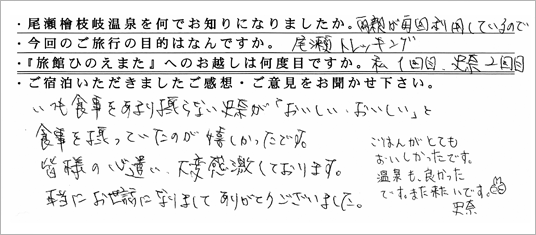 ・尾瀬檜枝岐温泉を何でお知りになりましたか。両親が毎回利用しているので
・今回のご旅行の目的はなんですか。 尾瀬トレッキング
・『旅館ひのえまた』へのお越しは何度目ですか。私1回目、史奈2回目
・ご宿泊いただきましたご感想・ご意見をお聞かせ下さい。
いつも食事をあまり摂らない史奈が「おいしい、おいしい」と
食事を摂っていたのが嬉しかったです。
皆様の心遣い、大変感激しております。
本当にお世話になりまして ありがとうございました。
ごはんがとても
おいしかったです。
温泉も、良かった
です。また来たいです。
史奈